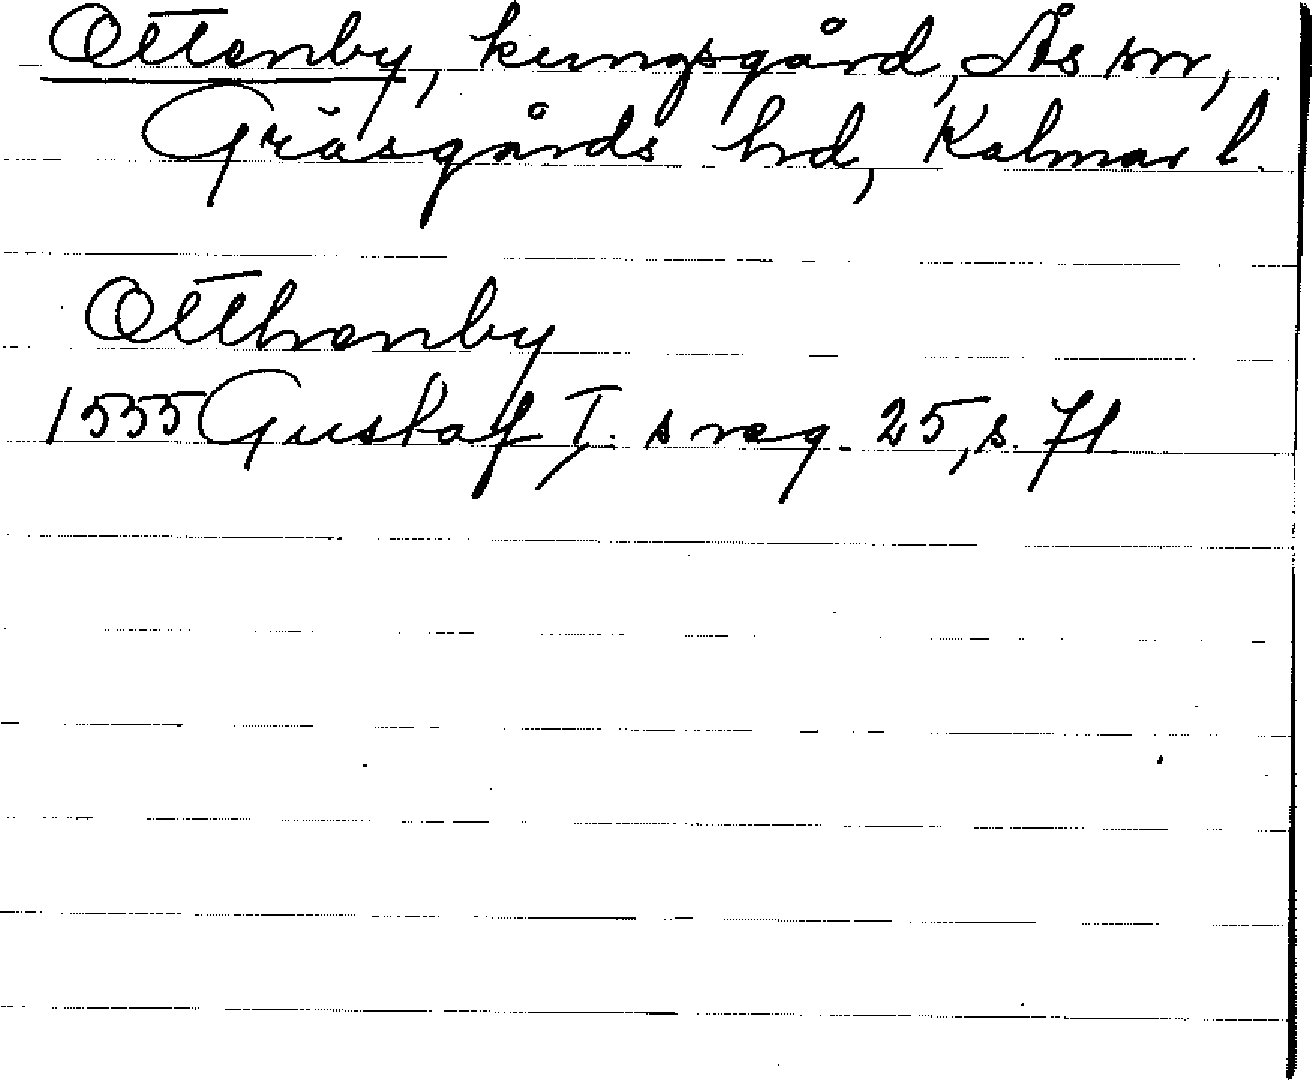 Ottenby, kungsgård, Ås sn,
Gräsgårds hd, Kalmar l.
Otthenby
1555 Gustaf I:s reg. 25, s. 71